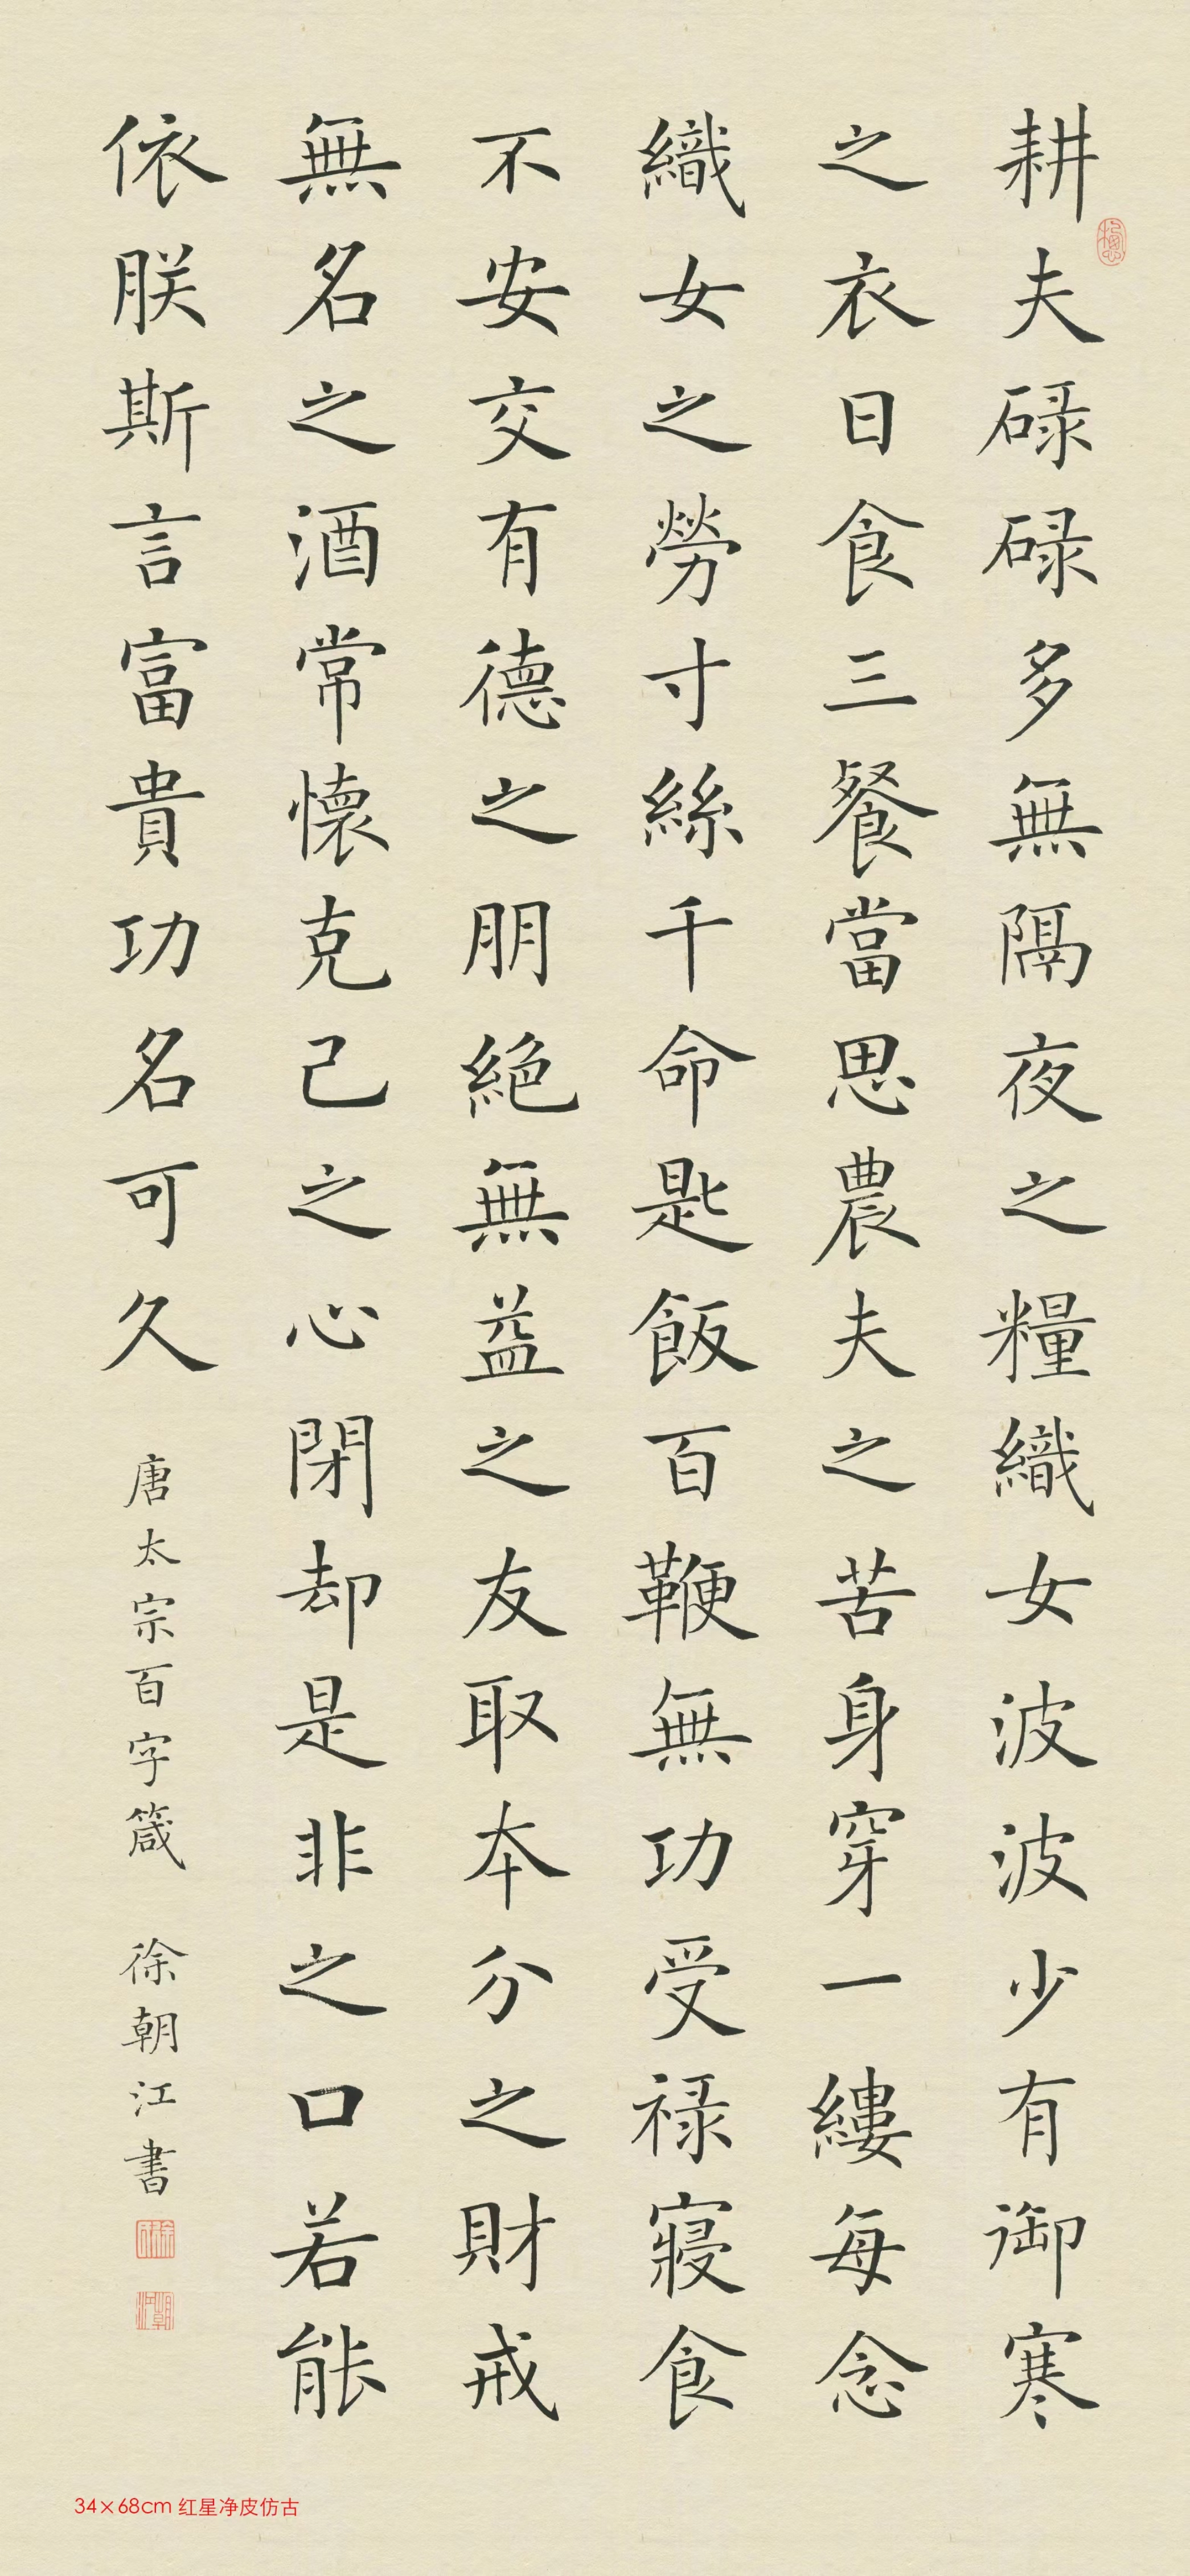 耕夫碌碌多無隔夜之糧織女波波少有御寒
之衣日食三餐當思農夫之苦身穿一縷每念
織女之勞寸絲千命匙飯百鞭無功受禄寢食
不安交有德之朋絕無益之友取本分之財戒
無名之酒常懷克己之心閉却是非之口若能
依朕斯言富貴功名可久
唐太宗百字箴 徐朝江書
34×68cm 红星净皮仿古